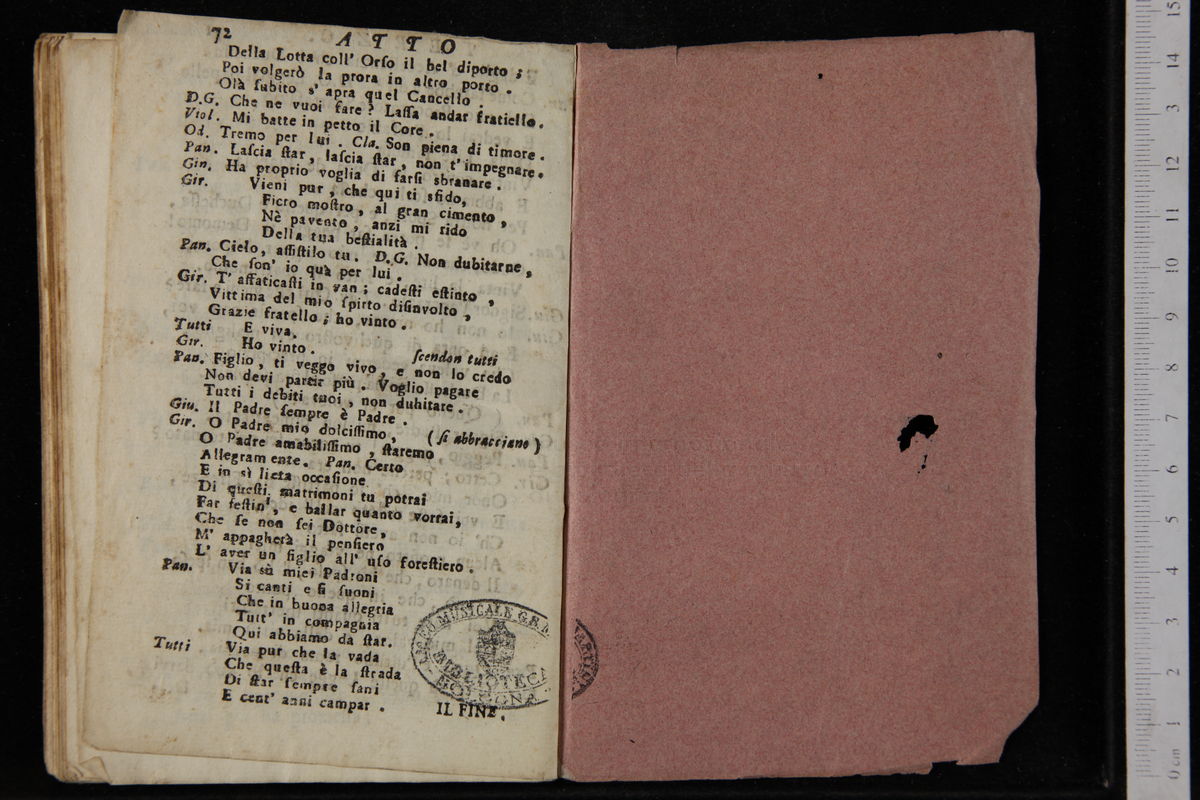 72 ATTO
Della Lotta coll' Orſo il bel diporto ;
Poi volgerò la prora in altro porto .
Olà ſubito s' apra quel Cancello .
D.G. Che ne vuoi fare ? Laſſa andar fratiello.
Viol. Mi batte in petto il Core .
Od. Tremo per lui . Cla. Son piena di timore .
Pan. Laſcia ſtar , laſcia ſtar , non t'impegnare.
Gin. Ha proprio voglia di farſi sbranare .
Gir. Vieni pur , che qui ti sfido,
Fiero moſtro , al gran cimento ,
Nè pavento , anzi mi rido
Della tua beſtialità .
Pan. Cielo, aſſiſtilo tu . D.G. Non dubitarne ,
Che ſon' io quà per lui .
Gir. T' affaticaſti in van ; cadeſti eſtinto ,
Vittima del mio ſpirto diſinvolto ,
Grazie fratello ; ho vinto .
Tutti E viva.
Gir. Ho vinto . ſcendon tutti
Pan. Figlio , ti veggo vivo , e non lo credo
Non devi partir più . Voglio pagare
Tutti i debiti tuoi , non duhitare .
Giu. Il Padre ſempre è Padre .
Gir. O Padre mio dolciſſimo , (ſi abbracciano)
O Padre amabiliſſimo , ſtaremo
Allegramente. Pan. Certo
E in sì lieta occaſione
Di queſti matrimoni tu potrai
Far feſtin', e ballar quanto vorrai,
Che ſe non ſei Dottore,
M' appagherà il penſiero
L' aver un figlio all' uſo foreſtiero .
Pan. Via sù miei Padroni
Si canti e ſi ſuoni
Che in buona allegria
Tutt' in compagnia
Qui abbiamo da ſtar.
Tutti Via pur che la vada
Che queſta è la ſtrada
Di ſtar ſempre ſani
E cent' anni campar .
IL FINE.
LICEO MUSICALE G.B. MARTINI
BIBLIOTECA
BOLOGNA
15
14
13
12
11
10
9
8
7
6
5
4
3
2
1
0 cm